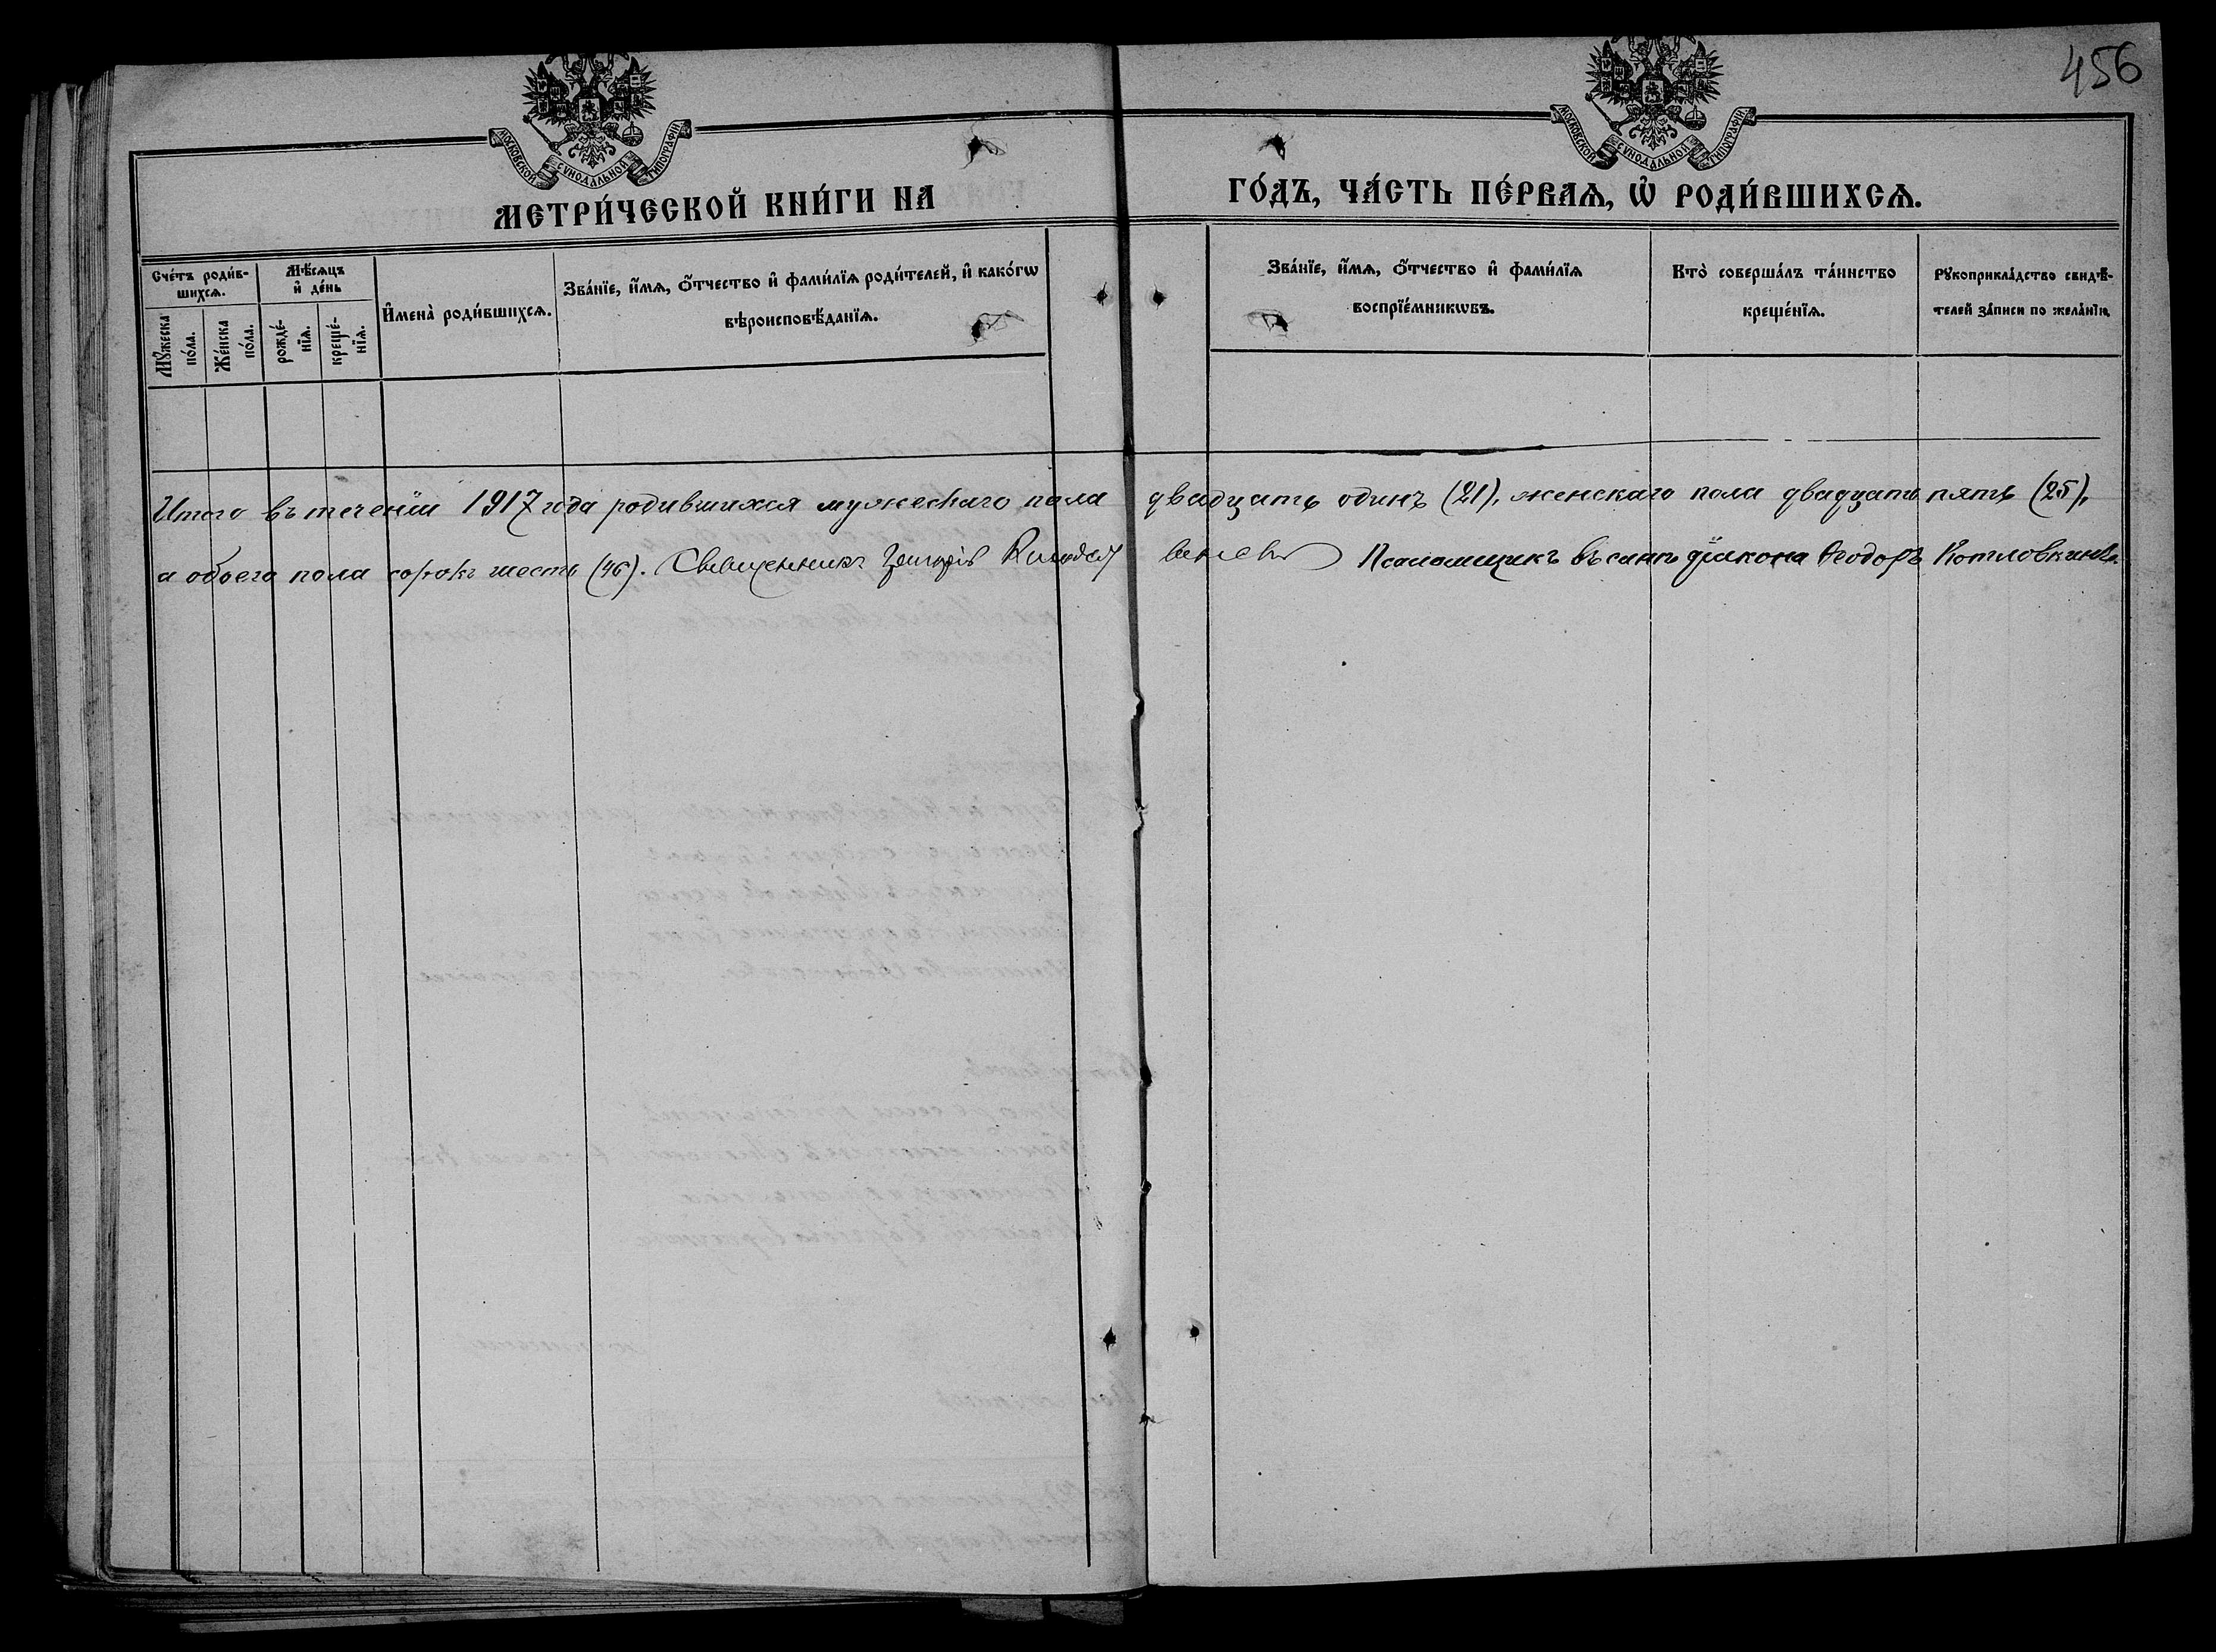 456
МОСКОВСКОЙ СѴНОДАЛЬНОЙ ТИПОГРАФІИ
МОСКОВСКОЙ СѴНОДАЛЬНОЙ ТИПОГРАФІИ
МЕТРИ́ЧЕСКОЙ КНИ́ГИ НА ГО́ДЪ, ЧА́СТЬ ПЕ́РВАѦ, Ѡ҆ РОДИ́ВШИХСѦ.
Сче́тъ роди́в-
шихсѧ.
Мѣ́сѧцъ
и҆ де́нь
Мꙋ́жеска
по́ла.
Же́нска
по́ла.
рожде́-
нїѧ.
креще́-
нїѧ.
И҆мена̀ роди́вшихсѧ.
Зва́нїе, и҆́мѧ, ѻ҆́тчество и҆ фами́лїѧ роди́телей, и҆ како́гѡ
вѣроисповѣ́данїѧ.
Зва́нїе, и҆́мѧ, ѻ҆́тчество и҆ фами́лїѧ
воспрїе́мникѡвъ.
Кто̀ соверша́лъ та́инство
креще́нїѧ.
Рꙋкоприкла́дство свидѣ́-
телей за́писи по жела́нїю.
Итого въ теченіи 1917 года родившихся мужескаго пола двадцать одинъ (21), женскаго пола двадцать пять (25),
а обоего пола сорокъ шесть (46). Священникъ Григорій Псаломщикъ въ санѣ діакона Ѳеодоръ Котловкинъ.